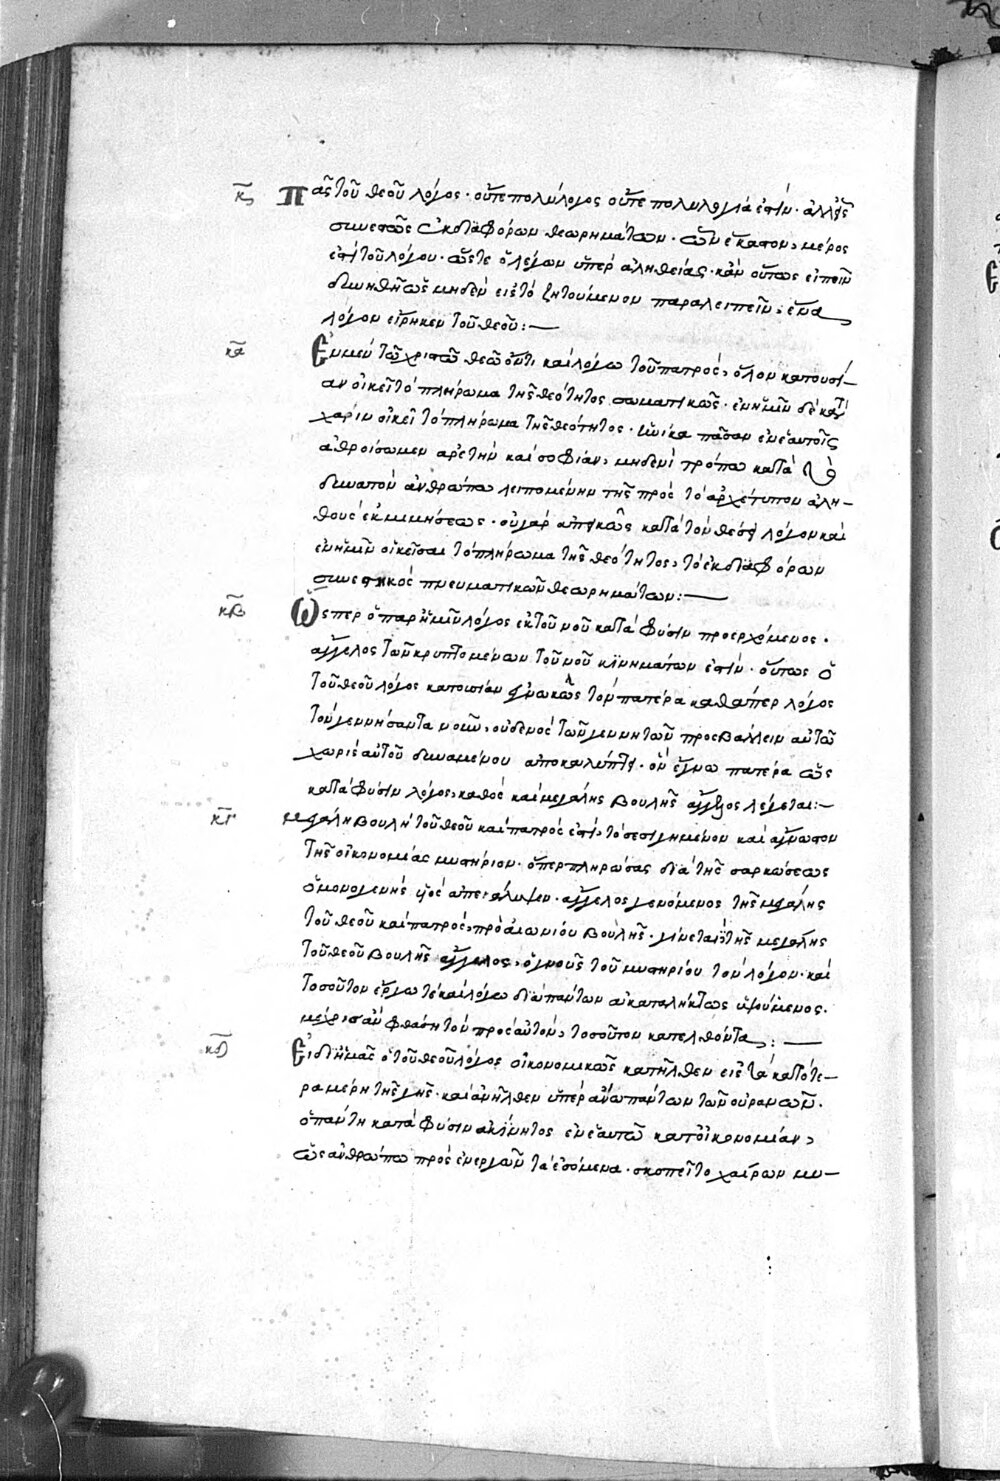 κ Πᾶς τοῦ θεοῦ λόγος· οὔτε πολύλογος οὔτε πολυλογία ἐστίν· ἀλλ' εἷς
συνεστὼς ἐκ διαφόρων θεωρημάτων· ὧν ἕκαστον, μέρος
ἐστὶ τοῦ λόγου· ὥστε ὁ λέγων ὑπὲρ ἀληθείας· κἂν οὕτως εἰπεῖν
δυνηθῇ ὡς μηδὲν εἰς τὸ ζητούμενον παραλειπεῖν, ἕνα
λόγον εἴρηκεν τοῦ θεοῦ:—
κα Ἐν μὲν τῶ χριστῶ θεῶ ὄντι καὶ λόγω τοῦ πατρὸς, ὅλον κατουσί—
αν οἰκεῖ τὸ πλήρωμα τῆς θεότητος σωματικῶς· ἐν ἡμῖν δὲ κατὰ
χάριν οἰκεῖ τὸ πλήρωμα τῆς θεότητος· ἡνίκα πᾶσαν ἐν ἑαυτοῖς
ἀθροίσωμεν ἀρετὴν καὶ σοφίαν, μηδενὶ τρόπω κατὰ τὸ
δυνατὸν ἀνθρώπω λειπομένην τῆς πρὸς τὸ ἀρχέτυπον ἀλη—
θοῦς ἐκμιμήσεως· οὐ γὰρ ἀπεικὸς κατὰ τὸν θέσει λόγον καὶ
ἐν ἡμῖν οἰκεῖσαι τὸ πλήρωμα τῆς θεότητος, τὸ ἐκ διαφόρων
συνεστηκὸς πνευματικῶν θεωρημάτων:—
κβ Ὥσπερ ὁ παρ' ἡμῖν λόγος ἐκ τοῦ νοῦ κατὰ φύσιν προερχόμενος·
ἄγγελος τῶν κρυπτομένων τοῦ νοῦ κινημάτων ἐστίν· οὕτως ὁ
τοῦ θεοῦ λόγος κατουσίαν ἐγνωκὼς τὸν πατέρα καθάπερ λόγος
τὸν γεννήσαντα νοῦν, οὐδενὸς τῶν γεννητῶν προσβάλλειν αὐτῶ
χωρὶς αὐτοῦ δυναμένου ἀποκαλύπτει· ὃν ἔγνω πατέρα ὡς
κατὰ φύσιν λόγος, καθὸ καὶ μεγάλης βουλῆς ἄγγελος λέγεται:—
κγ Μεγάλη βουλὴ τοῦ θεοῦ καὶ πατρός ἐστι, τὸ σεσιγημένον καὶ ἄγνωστον
τῆς οἰκονομίας μυστήριον· ὅπερ πληρώσας διὰ τῆς σαρκώσεως
ὁ μονογενὴς υἱὸς ἀπεκάλυψεν· ἄγγελος γενόμενος τῆς μεγάλης
τοῦ θεοῦ καὶ πατρὸς, πρὸ αἰωνίου βουλῆς· γίνεται τῆς μεγάλης
τοῦ θεοῦ βουλῆς ἄγγελος, ὁ γνοὺς τοῦ μυστηρίου τὸν λόγον· καὶ
τοσοῦτον ἔργω τε καὶ λόγω διὰ πάντων ἀκαταλήκτως ὑψούμενος·
μέχρις ἂν φθάση τὸν πρὸς αὐτὸν, τοσοῦτον κατελθόντα:—
κδ Εἰ δι' ἡμᾶς ὁ τοῦ θεοῦ λόγος οἰκονομικῶς κατῆλθεν εἰς τὰ κατώτε—
ρα μέρη τῆς γῆς· καὶ ἀνῆλθεν ὑπὲρ ἄνω πάντων τῶν οὐρανῶν·
ὁ πάντη κατὰ φύσιν ἀκίνητος ἐν ἑαυτῶ κατ' οἰκονομίαν,
ὡς ἀνθρώπω προενεργῶν τὰ ἐσόμενα· σκοπείτω χαίρων μυ—